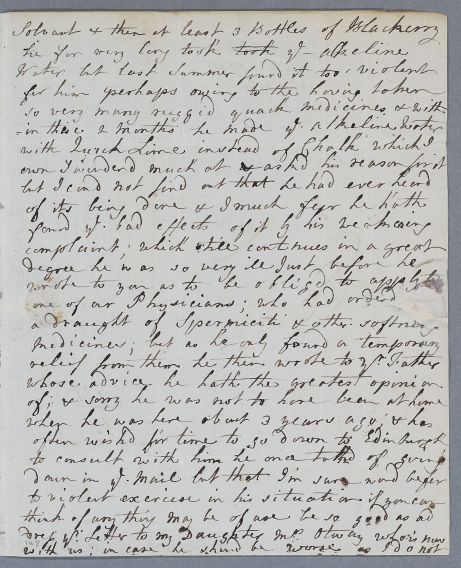 Solvant & then at least 3 Bottles of Blackerry
he for very long took took yᵉ alkeline
Water but last Summer found it too violent
for him perhaps owing to the having taken
so very many rugged quack medicines & with
-in these 2 months he made yᵉ alkeline Water
with Quick Lime instead of Chalk which I
own I wonderd much at & ask'd his reason for it
but I coud not find out that he had ever heard
of its being done & I much fear he hath
found yᵉ bad effects of it by his weakning
complaint; which still continues in a great
degree he was so very ill Just before he
wrote to you as to be obliged to apply to
one of our Physicians; who had order'd
a draught of Spermiciti & other softning
medicines; but as he only found a temporary
relief from them he then wrote to yʳ Father
whose advice he hath the greatest opinion
of; & sorry he was not to have been at home
when he was here about 3 years ago; & has
often wish'd for time to go down to Edinburgh
to consult with him he once of going
down in yᵉ Mail but that I'm sure woud be
to violent exercise in his situation if you can
think of any thing may be of use be so good as ad
dress yʳ Letter to my Daughter Mʳˢ Otway who is now
with us; in case he shoud be worse as I do not